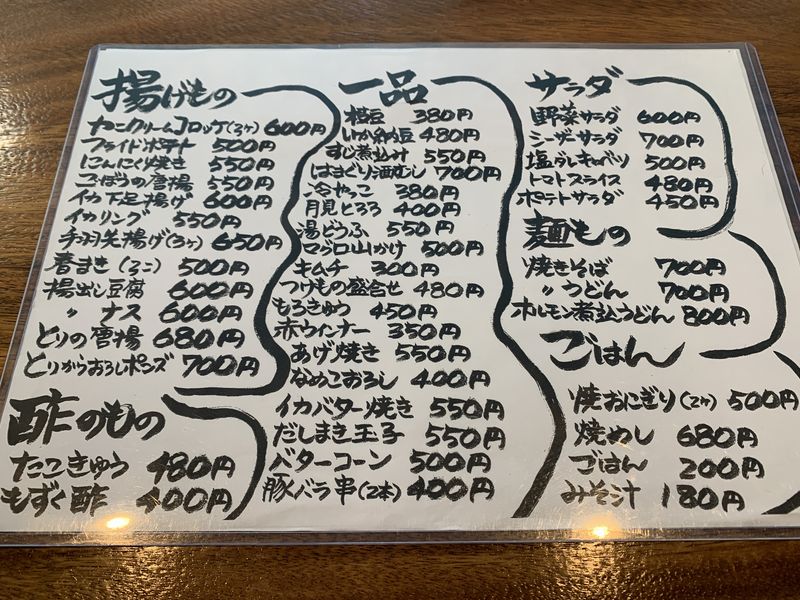 揚げもの
カニクリームコロッケ(3ケ) 600円
フライドポテト 500円
にんにく焼き 550円
ごぼうの唐揚 550円
イカ下足揚げ 600円
イカリング 550円
手羽先揚げ(3ケ) 650円
春まき(3コ) 500円
揚出し豆腐 600円
〃 ナス 600円
とりの唐揚 680円
とりからおろしポンズ 700円
酢のもの
たこきゅう 480円
もずく酢 400円
一品
枝豆 380円
いか納豆 480円
すじ煮込み 550円
はまぐり酒むし 700円
冷やっこ 380円
月見とろろ 400円
湯どうふ 550円
マグロ山かけ 500円
キムチ 300円
つけもの盛合せ 480円
もろきゅう 450円
赤ウインナー 350円
あげ焼き 550円
なめこおろし 400円
イカバター焼き 550円
だしまき玉子 550円
バターコーン 500円
豚バラ串(2本) 400円
サラダ
野菜サラダ 600円
シーザーサラダ 700円
塩ダレキャベツ 500円
トマトスライス 480円
ポテトサラダ 450円
麺もの
焼きそば 700円
〃うどん 700円
ホルモン煮込うどん 800円
ごはん
焼おにぎり(2ケ) 500円
焼めし 680円
ごはん 200円
みそ汁 180円